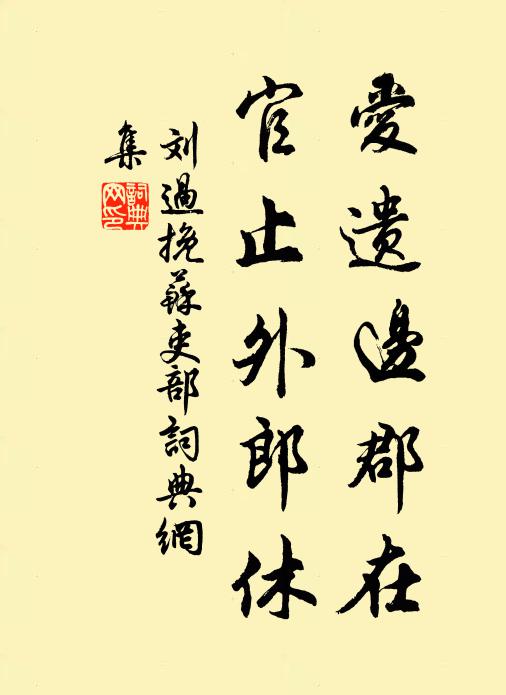 愛遺邊郡在
官止外郎休
刘過挽蘇吏部詞典網
集
詞典网印